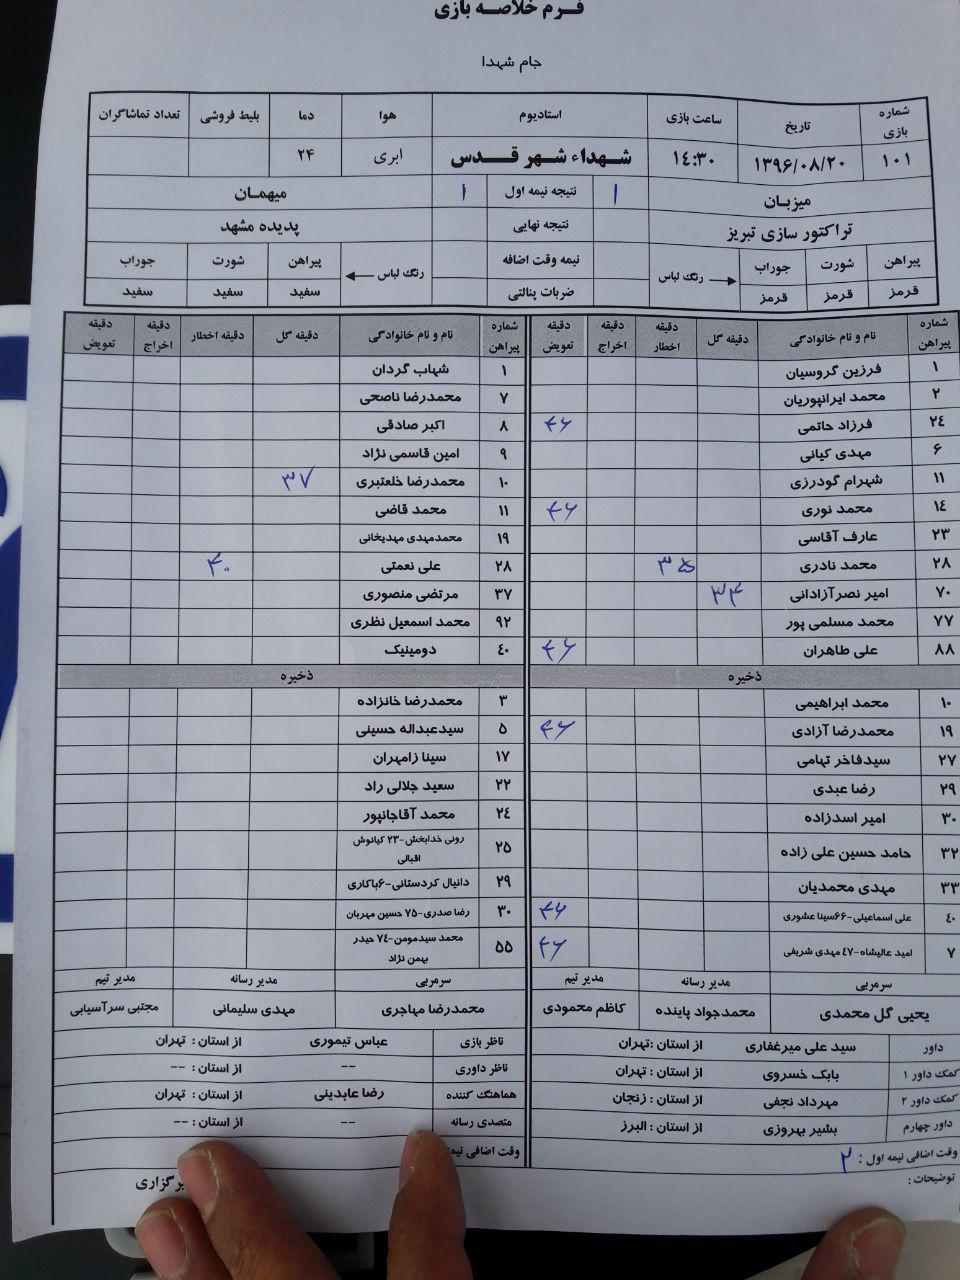 فرم خلاصه بازی
جام شهدا
شماره بازی | تاریخ | ساعت بازی | استادیوم | هوا | دما | بلیط فروشی | تعداد تماشاگران
۱۰۱ | ۱۳۹۶/۰۸/۲۰ | ۱٤:۳۰ | شهداء شهر قدس | ابری | ۲۴
میزبان | ۱ | نتیجه نیمه اول | ۱ | میهمان
تراکتور سازی تبریز | نتیجه نهایی | پدیده مشهد
پیراهن | شورت | جوراب | رنگ لباس | نیمه وقت اضافه | رنگ لباس | پیراهن | شورت | جوراب
قرمز | قرمز | قرمز | ضربات پنالتی | سفید | سفید | سفید
شماره پیراهن | نام و نام خانوادگی | دقیقه گل | دقیقه اخطار | دقیقه اخراج | دقیقه تعویض | شماره پیراهن | نام و نام خانوادگی | دقیقه گل | دقیقه اخطار | دقیقه اخراج | دقیقه تعویض
۱ | فرزین گروسیان | ۱ | شهاب گردان
۲ | محمد ایرانپوریان | ۷ | محمدرضا ناصحی
۲٤ | فرزاد حاتمی | ۴۶ | ۸ | اکبر صادقی
۶ | مهدی کیانی | ۹ | امین قاسمی نژاد
۱۱ | شهرام گودرزی | ۱۰ | محمدرضا خلعتبری | ۳۷
۱٤ | محمد نوری | ۴۶ | ۱۱ | محمد قاضی
۲۳ | عارف آقاسی | ۱۹ | محمدمهدی مهدیخانی
۲۸ | محمد نادری | ۳۵ | ۲۸ | علی نعمتی | ۴۰
۷۰ | امیر نصرآزادانی | ۳۴ | ۳۷ | مرتضی منصوری
۷۷ | محمد مسلمی پور | ۹۲ | محمد اسمعیل نظری
۸۸ | علی طاهران | ۴۶ | ٤۰ | دومینیک
ذخیره | ذخیره
۱۰ | محمد ابراهیمی | ۳ | محمدرضا خانزاده
۱۹ | محمدرضا آزادی | ۴۶ | ۵ | سیدعبداله حسینی
۲۷ | سیدفاخر تهامی | ۱۷ | سینا زامهران
۲۹ | رضا عبدی | ۲۲ | سعید جلالی راد
۳۰ | امیر اسدزاده | ۲٤ | محمد آقاجانپور
۳۲ | حامد حسین علی زاده | ۲۵ | رونی خدابخش-۲۳ کیانوش اقبالی
۳۳ | مهدی محمدیان | ۲۹ | دانیال کردستانی-۶باکاری
٤۰ | علی اسماعیلی-۶۶سینا عشوری | ۴۶ | ۳۰ | رضا صدری-۷۵ حسین مهربان
۷ | امید عالیشاه-٤۷مهدی شریفی | ۴۶ | ۵۵ | محمد سیدمومن-۷٤ حیدر بهمن نژاد
سرمربی | مدیر رسانه | مدیر تیم | سرمربی | مدیر رسانه | مدیر تیم
یحیی گل محمدی | محمدجواد پاینده | کاظم محمودی | محمدرضا مهاجری | مهدی سلیمانی | مجتبی سرآسیابی
داور | سید علی میرغفاری | از استان :تهران | ناظر بازی | عباس تیموری | از استان : تهران
کمک داور ۱ | بابک خسروی | از استان : تهران | ناظر داوری | -- | از استان : --
کمک داور ۲ | مهرداد نجفی | از استان : زنجان | هماهنگ کننده | رضا عابدینی | از استان : تهران
داور چهارم | بشیر بهروزی | از استان : البرز | متصدی رسانه | -- | از استان : --
وقت اضافی نیمه اول : ۲ | وقت اضافی نیمه
توضیحات : | برگزاری